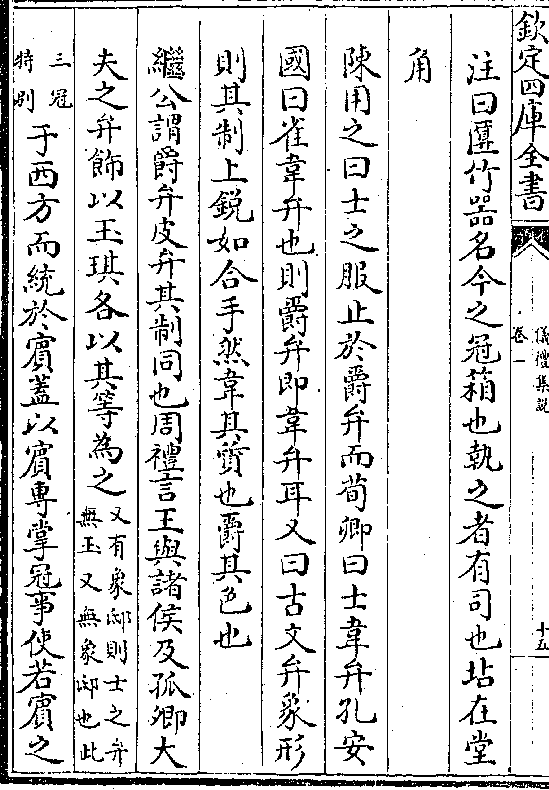 欽定四庫全書
儀禮集說
卷一
十五
注曰匴竹器名今之冠箱也執之者有司也坫在堂
角
陳用之曰士之服止於爵弁而荀卿曰士韋弁孔安
國曰雀韋弁也則爵弁即韋弁耳又曰古文弁象形
則其制上銳如合手然韋其質也爵其色也
繼公謂爵弁皮弁其制同也周禮言王與諸侯及孤卿大
夫之弁飾以玉琪各以其等為之又有象邸則士之弁無玉又無象邸也此
三冠特别于西方而統於賓蓋以賓専掌冠事使若賓之